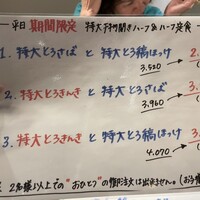 平日 期間限定 特大干物開きハーフ&ハーフ定食
1. 特大とろさば と 特大とろ縞ほっけ
3,520 → 2.
2. 特大とろきんき と 特大とろさば
3,960 → 3.
3. 特大とろきんき と 特大とろ縞ほっけ
4,070 → 3.
2名様以上での "おひとつ" の御注文は出来ません。(お子様